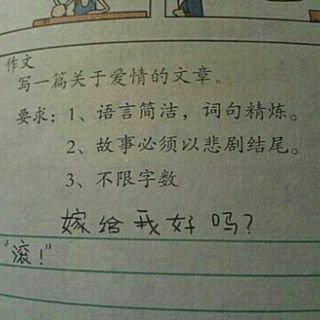 作文
写一篇关于爱情的文章。
要求：1、语言简洁，词句精炼。
2、故事必须以悲剧结尾。
3、不限字数
嫁给我好吗？
“滚！”